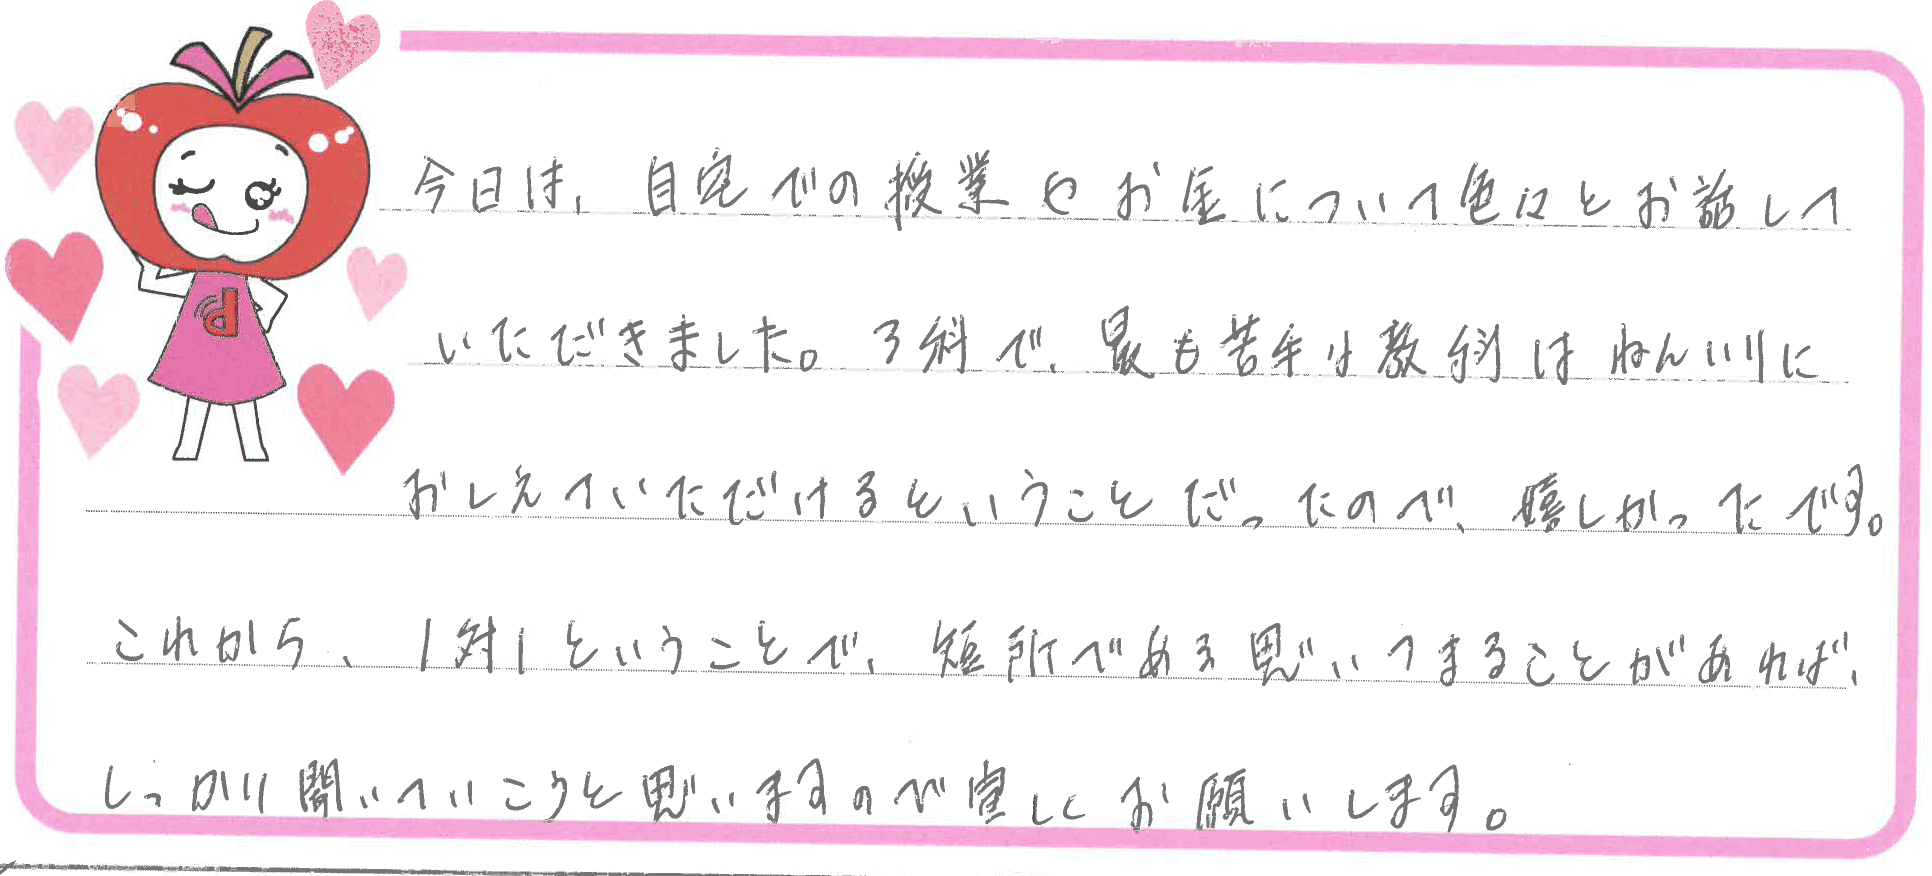 今日は、自宅での授業やお金について色々とお話して
いただきました。3科で、最も苦手な教科はねんいりに
おしえていただけるということだったので、嬉しかったです。
これから、1対1ということで、短所である思いつまることがあれば、
しっかり聞いていこうと思いますので宜しくお願いします。
d